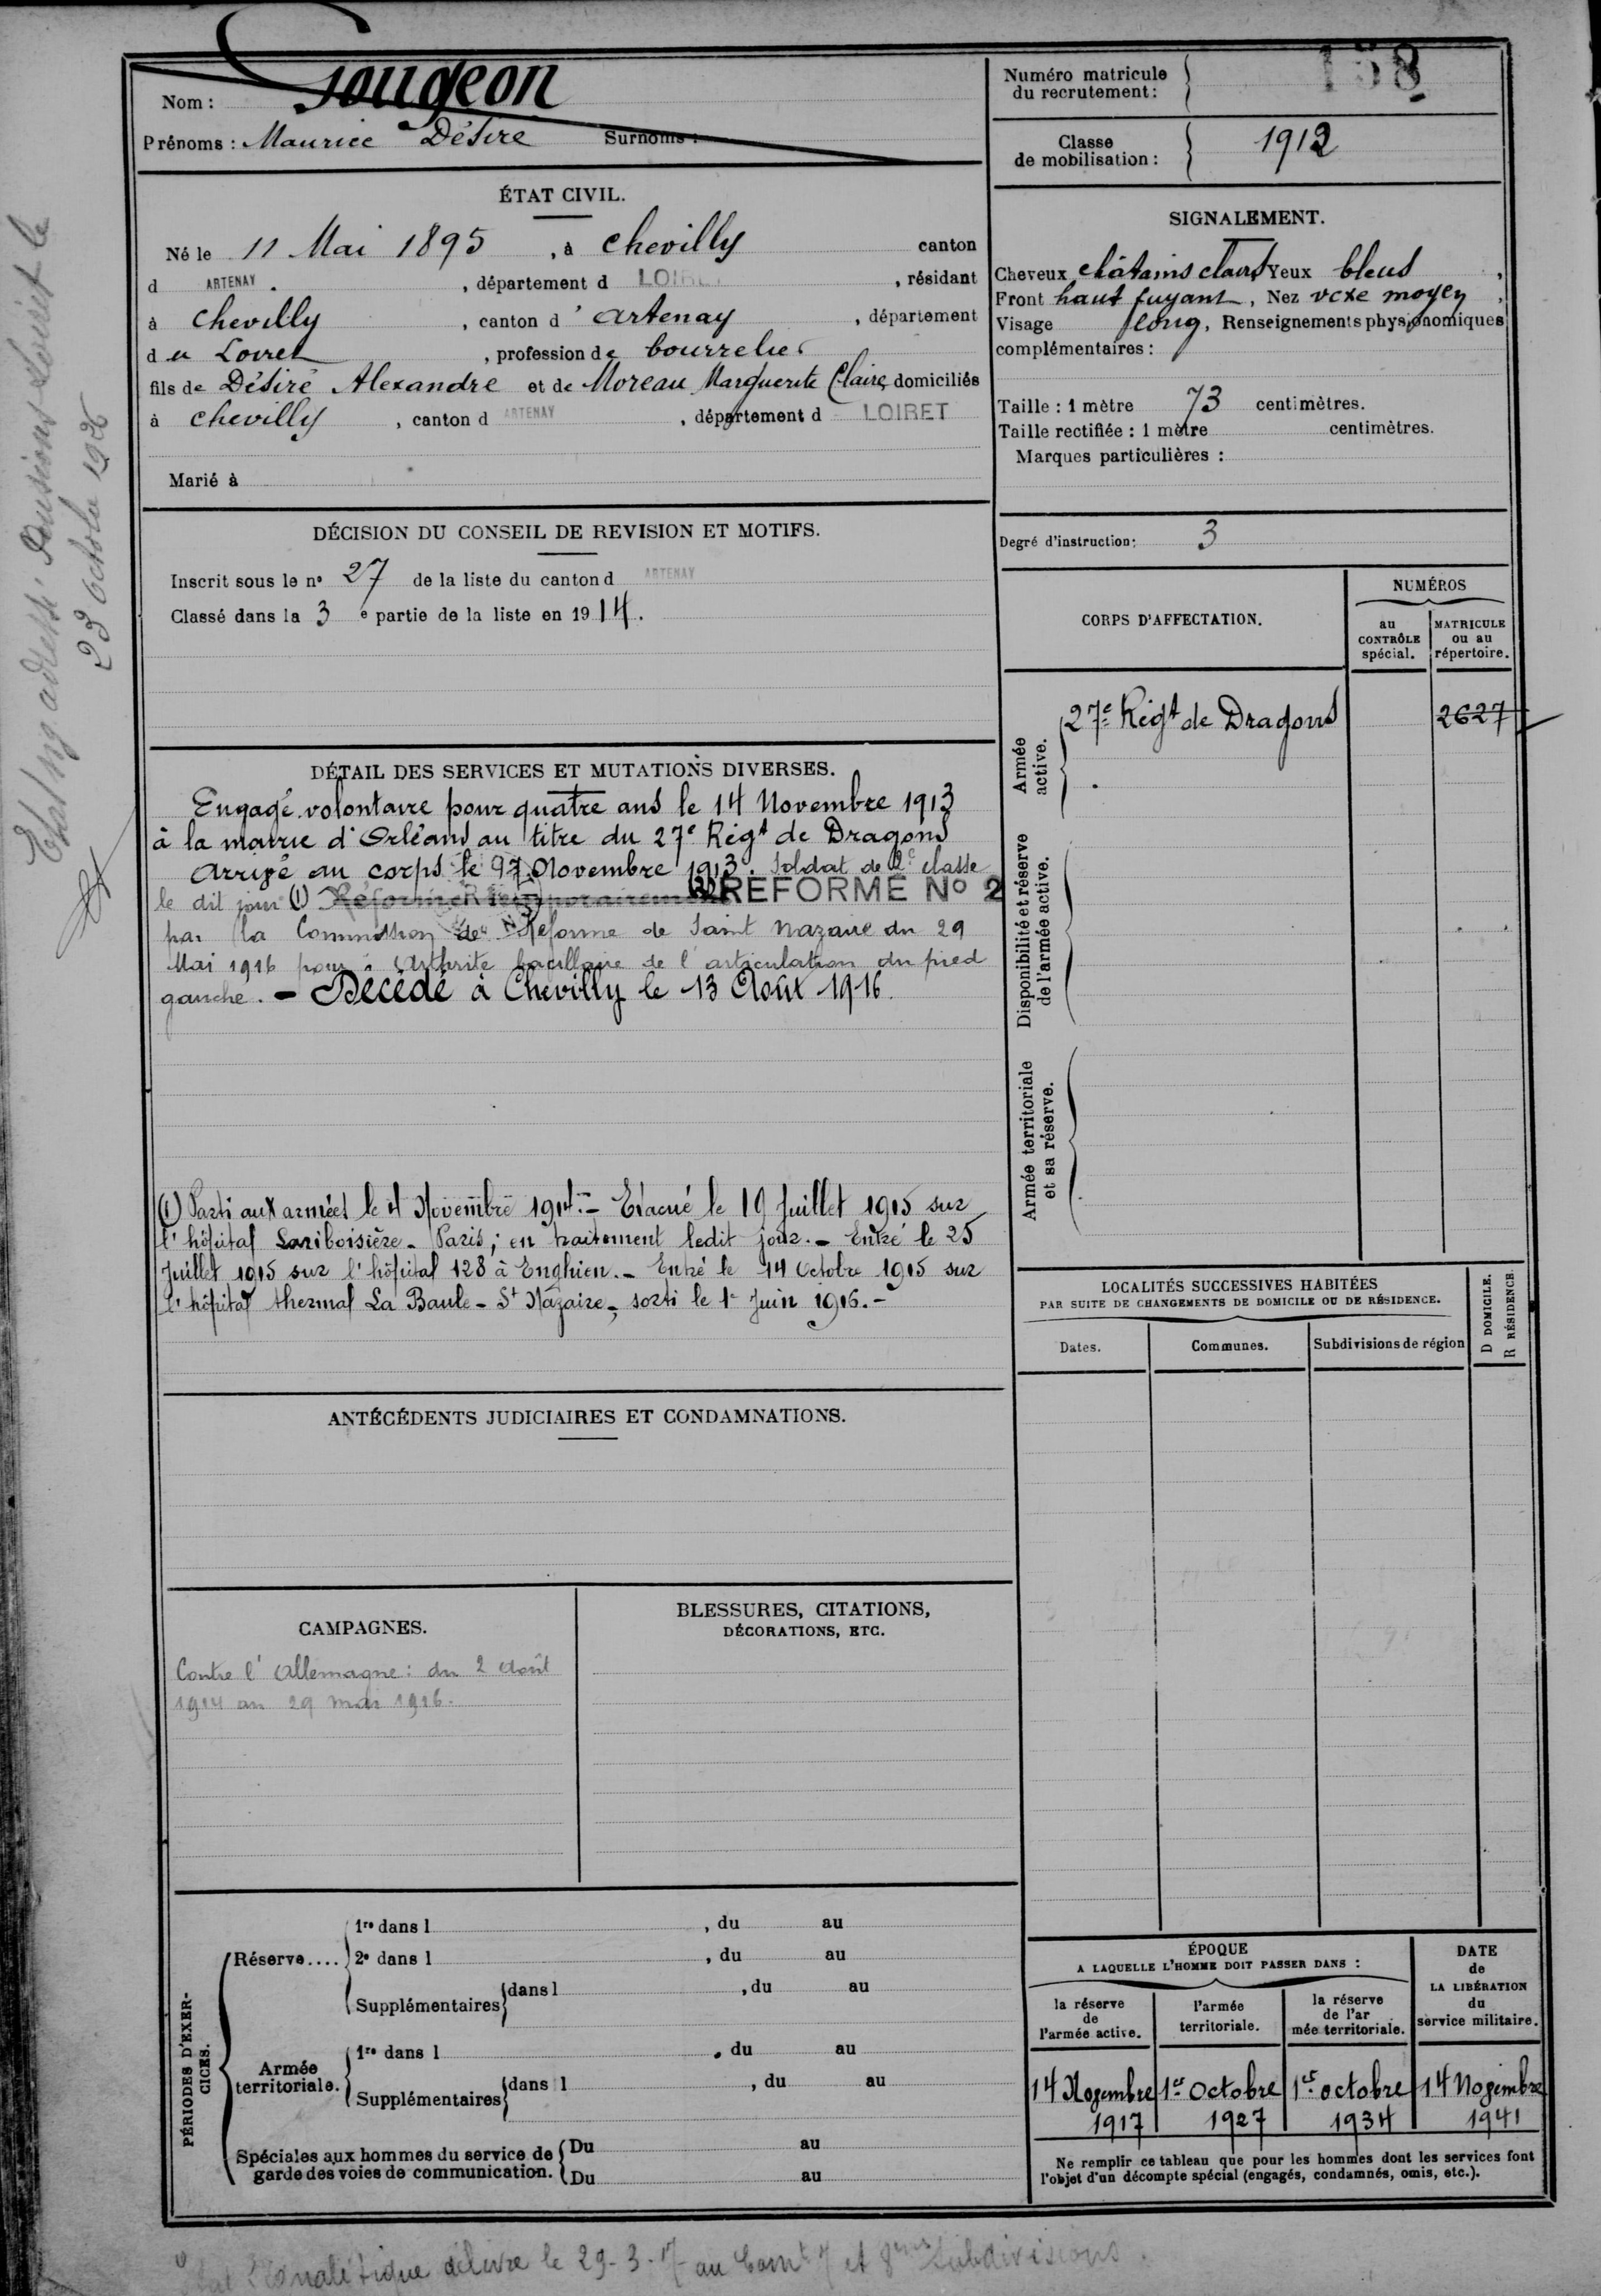 Nom : Gougeon
Prénoms : Maurice Désiré Surnoms :
Numéro matricule du recrutement : 158
Classe de mobilisation : 1912
ÉTAT CIVIL.
Né le 11 Mai 1895, à Chevilly canton
d ARTENAY, département d LOIRET, résidant
à Chevilly, canton d'Artenay, département
du Loiret, profession de bourrelier
fils de Désiré Alexandre et de Moreau Marguerite Claire, domiciliés
à Chevilly, canton d ARTENAY, département d LOIRET
Marié à
SIGNALEMENT.
Cheveux châtains clairs Yeux bleus,
Front haut fuyant, Nez vexe moyen,
Visage long, Renseignements physionomiques
complémentaires :
Taille : 1 mètre 73 centimètres.
Taille rectifiée : 1 mètre centimètres.
Marques particulières :
DÉCISION DU CONSEIL DE REVISION ET MOTIFS.
Inscrit sous le n° 27 de la liste du canton d ARTENAY
Classé dans la 3e partie de la liste en 1914.
Degré d'instruction : 3
CORPS D'AFFECTATION.
NUMÉROS
au CONTRÔLE spécial.
MATRICULE ou au répertoire.
Armée active.
27e Régt de Dragons 2627
Disponibilité et réserve de l'armée active.
Armée territoriale et sa réserve.
DÉTAIL DES SERVICES ET MUTATIONS DIVERSES.
Engagé volontaire pour quatre ans le 14 Novembre 1913
à la mairie d'Orléans au titre du 27e Régt de Dragons
Arrivé au corps le 17 Novembre 1913. Soldat de 2e classe
le dit jour (1) Réformé temporairement REFORMÉ No 2
par la Commission de Réforme de Saint Nazaire du 29
Mai 1916 pour : Arthrite bacillaire de l'articulation du pied
gauche. - Décédé à Chevilly le 13 Août 1916.
(1) Parti aux armées le 4 Novembre 1914. - Evacué le 19 Juillet 1915 sur
l'hôpital Lariboisière - Paris ; en traitement ledit jour. - Entré le 25
Juillet 1915 sur l'hôpital 128 à Enghien. - Entré le 14 Octobre 1915 sur
l'hôpital thermal La Baule - St Nazaire, sorti le 1er Juin 1916. -
LOCALITÉS SUCCESSIVES HABITÉES
PAR SUITE DE CHANGEMENTS DE DOMICILE OU DE RÉSIDENCE.
Dates. Communes. Subdivisions de région
D DOMICILE.
R RÉSIDENCE.
ANTÉCÉDENTS JUDICIAIRES ET CONDAMNATIONS.
CAMPAGNES.
Contre l'Allemagne : du 2 Août
1914 au 29 mai 1916.
BLESSURES, CITATIONS,
DÉCORATIONS, ETC.
PÉRIODES D'EXERCICES.
Réserve....
1re dans l , du au
2e dans l , du au
Supplémentaires dans l , du au
Armée territoriale.
1re dans l , du au
Supplémentaires dans l , du au
Spéciales aux hommes du service de
garde des voies de communication.
Du au
Du au
ÉPOQUE
A LAQUELLE L'HOMME DOIT PASSER DANS :
la réserve de l'armée active.
l'armée territoriale.
la réserve de l'armée territoriale.
DATE de LA LIBÉRATION du service militaire.
14 Novembre 1er Octobre 1er octobre 14 Novembre
1917 1927 1934 1941
Ne remplir ce tableau que pour les hommes dont les services font
l'objet d'un décompte spécial (engagés, condamnés, omis, etc.).
adressé Pensions Loiret le
23 Octobre 1926
délivré le 29-3-17 au et Subdivisions.